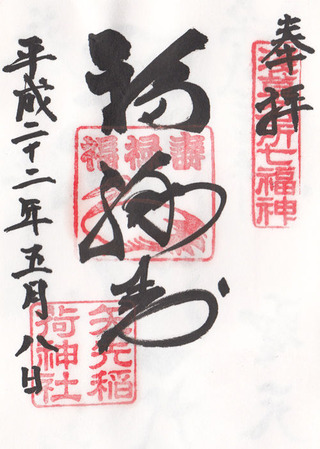 奉拝
浅草名所七福神
福禄寿
福禄壽
平成二十二年五月八日
矢先稲
荷神社